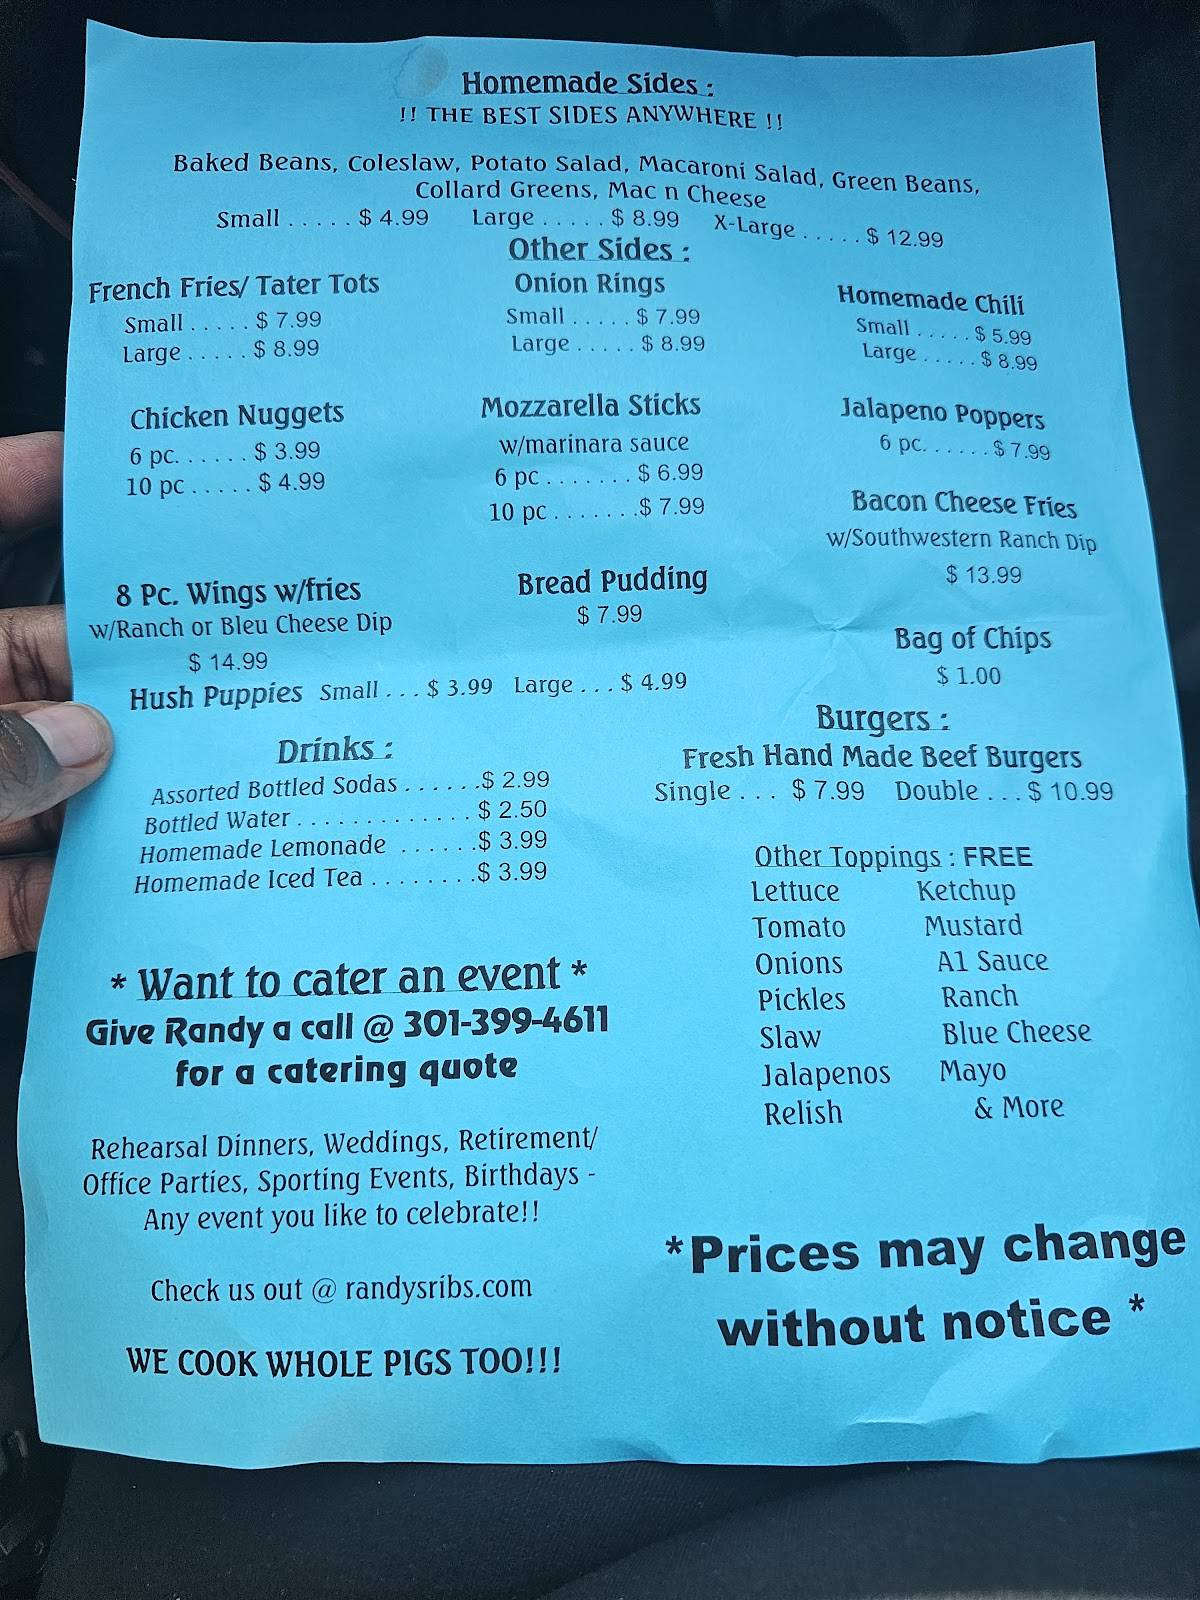 Homemade Sides :
!! THE BEST SIDES ANYWHERE !!
Baked Beans, Coleslaw, Potato Salad, Macaroni Salad, Green Beans,
Collard Greens, Mac n Cheese
Small . . . . . $ 4.99 Large . . . . . $ 8.99 X-Large . . . . . $ 12.99
Other Sides :
French Fries/ Tater Tots
Small . . . . . $ 7.99
Large . . . . . $ 8.99
Onion Rings
Small . . . . . $ 7.99
Large . . . . . $ 8.99
Homemade Chili
Small . . . . . $ 5.99
Large . . . . . $ 8.99
Chicken Nuggets
6 pc. . . . . . $ 3.99
10 pc . . . . . $ 4.99
Mozzarella Sticks
w/marinara sauce
6 pc . . . . . . . $ 6.99
10 pc . . . . . . .$ 7.99
Jalapeno Poppers
6 pc. . . . . . $ 7.99
Bacon Cheese Fries
w/Southwestern Ranch Dip
$ 13.99
8 Pc. Wings w/fries
w/Ranch or Bleu Cheese Dip
$ 14.99
Bread Pudding
$ 7.99
Bag of Chips
$ 1.00
Hush Puppies Small . . . $ 3.99 Large . . . $ 4.99
Drinks :
Assorted Bottled Sodas . . . . . .$ 2.99
Bottled Water . . . . . . . . . . . . . $ 2.50
Homemade Lemonade . . . . . .$ 3.99
Homemade Iced Tea . . . . . . . .$ 3.99
Burgers :
Fresh Hand Made Beef Burgers
Single . . . $ 7.99 Double . . . $ 10.99
Other Toppings : FREE
Lettuce Ketchup
Tomato Mustard
Onions A1 Sauce
Pickles Ranch
Slaw Blue Cheese
Jalapenos Mayo
Relish & More
* Want to cater an event *
Give Randy a call @ 301-399-4611
for a catering quote
Rehearsal Dinners, Weddings, Retirement/
Office Parties, Sporting Events, Birthdays -
Any event you like to celebrate!!
Check us out @ randysribs.com
WE COOK WHOLE PIGS TOO!!!
*Prices may change
without notice *